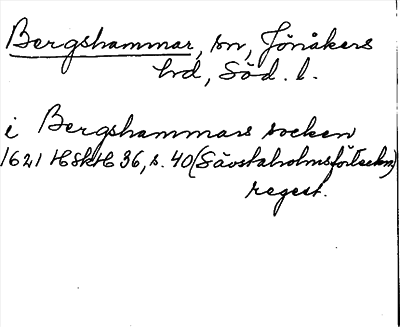 Bergshammar, sn, Jönåkers
hd, Söd. l.
i Bergshammars socken
1621 HSkH 36, s. 40 (Sävstaholmsförteckn)
regest.